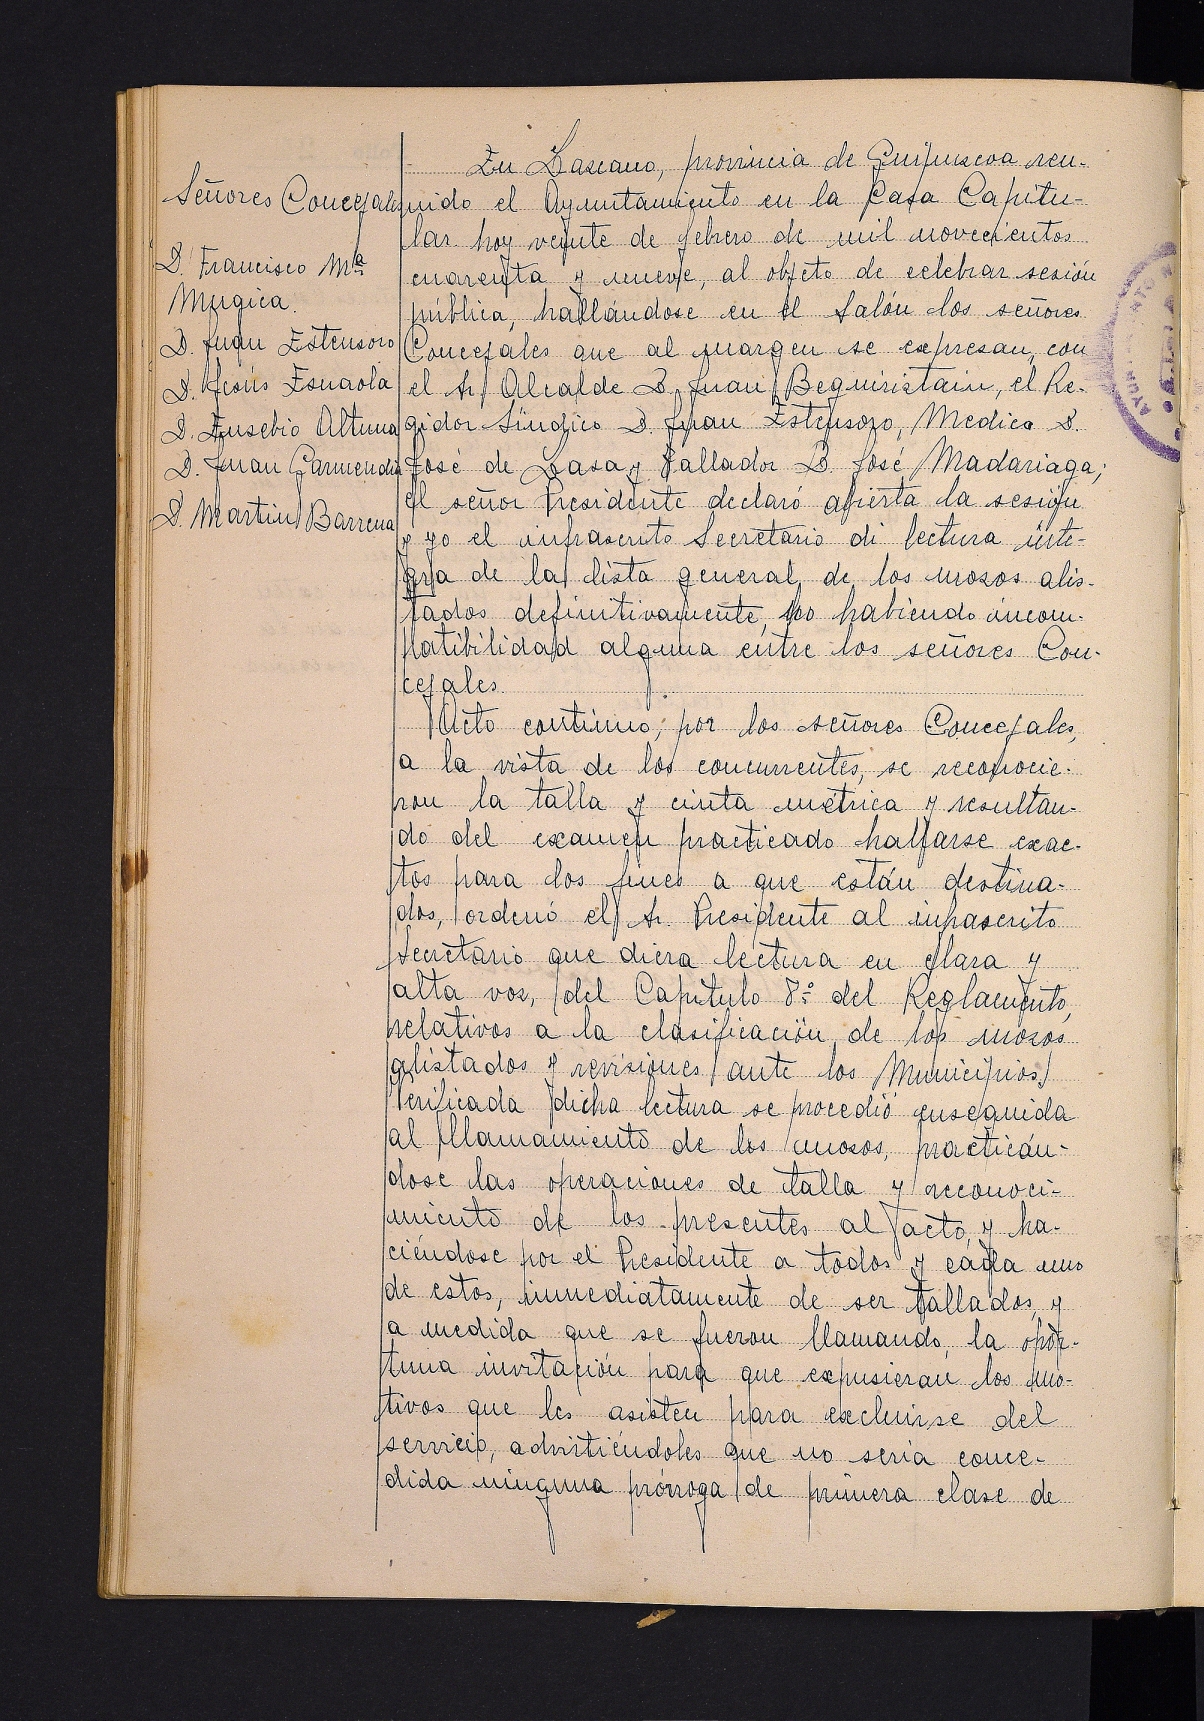 Señores Concejales
D. Francisco Mª
Mugica.
D. Juan Estensoro
D. Jesús Esnaola
D. Eusebio Altuna
D. Juan Garmendia
D. Martin Barrena
En Lazcano, provincia de Guipuscoa reu-
nido el Ayuntamiento en la Casa Capitu-
lar hoy veinte de febrero de mil novecientos
cuarenta y nueve, al objeto de celebrar sesión
pública, hallándose en el Salón los señores
Concejales que al margen se expresan, con
el Sr. Alcalde D. Juan Beguiristain, el Re-
gidor Síndico D. Juan Estensoro, Medico D.
José de Lasa y Tallador D. José Madariaga;
el señor Presidente declaró abierta la sesión
y yo el infrascrito Secretario di lectura ínte-
gra de la lista general de los mozos alis-
tados definitivamente, no habiendo incom-
patibilidad alguna entre los señores Con-
cejales.
Acto continuo, por los señores Concejales,
a la vista de los concurrentes, se reconocie-
ron la talla y cinta métrica y resultan-
do del examen practicado hallarse exac-
tos para los fines a que están destina-
dos, ordenó el Sr. Presidente al infrascrito
Secretario que diera lectura en clara y
alta voz, del Capítulo 8º del Reglamento,
relativos a la clasificación de los mozos
alistados y revisiones ante los Municipios.
Verificada dicha lectura se procedió enseguida
al llamamiento de los mozos, practicán-
dose las operaciones de talla y reconoci-
miento de los presentes al acto, y ha-
ciéndose por el Presidente a todos y cada uno
de estos, inmediatamente de ser tallados, y
a medida que se fueron llamando, la opor-
tuna invitación para que expusieran los mo-
tivos que les asisten para excluirse del
servicio, advirtiéndoles que no sería conce-
dida ninguna prórroga de primera clase de